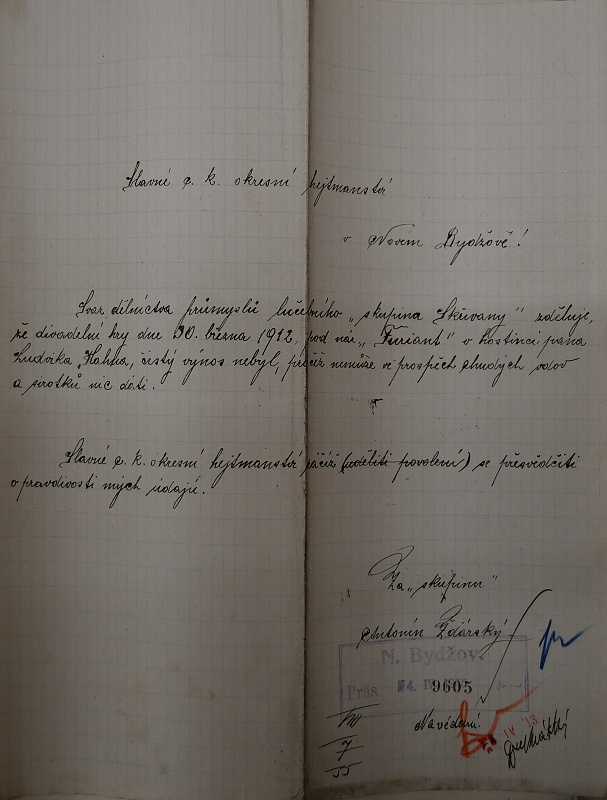 Slavné c. k. okresní hejtmanství
v Novém Bydžově!
Svaz dělnictva průmyslu lučebního „skupina Skřivany" zděluje,
že divadelní hry dne 30. března 1912, pod náz. „Furiant" v hostinci pana
Ludvíka Hahna, čistý výnos nebyl, pročež nemůže ve prospěch chudých vdov
a sirotků nic dáti.
Slavné c. k. okresní hejtmanství ráčiž (uděliti povolení) se přesvědčiti
o pravdivosti mých údajů.
Za „skupinu"
Antonín Žďárský
N. Bydžov.
Präs. 4. IV.
9605
VIII
7
55
IV 13